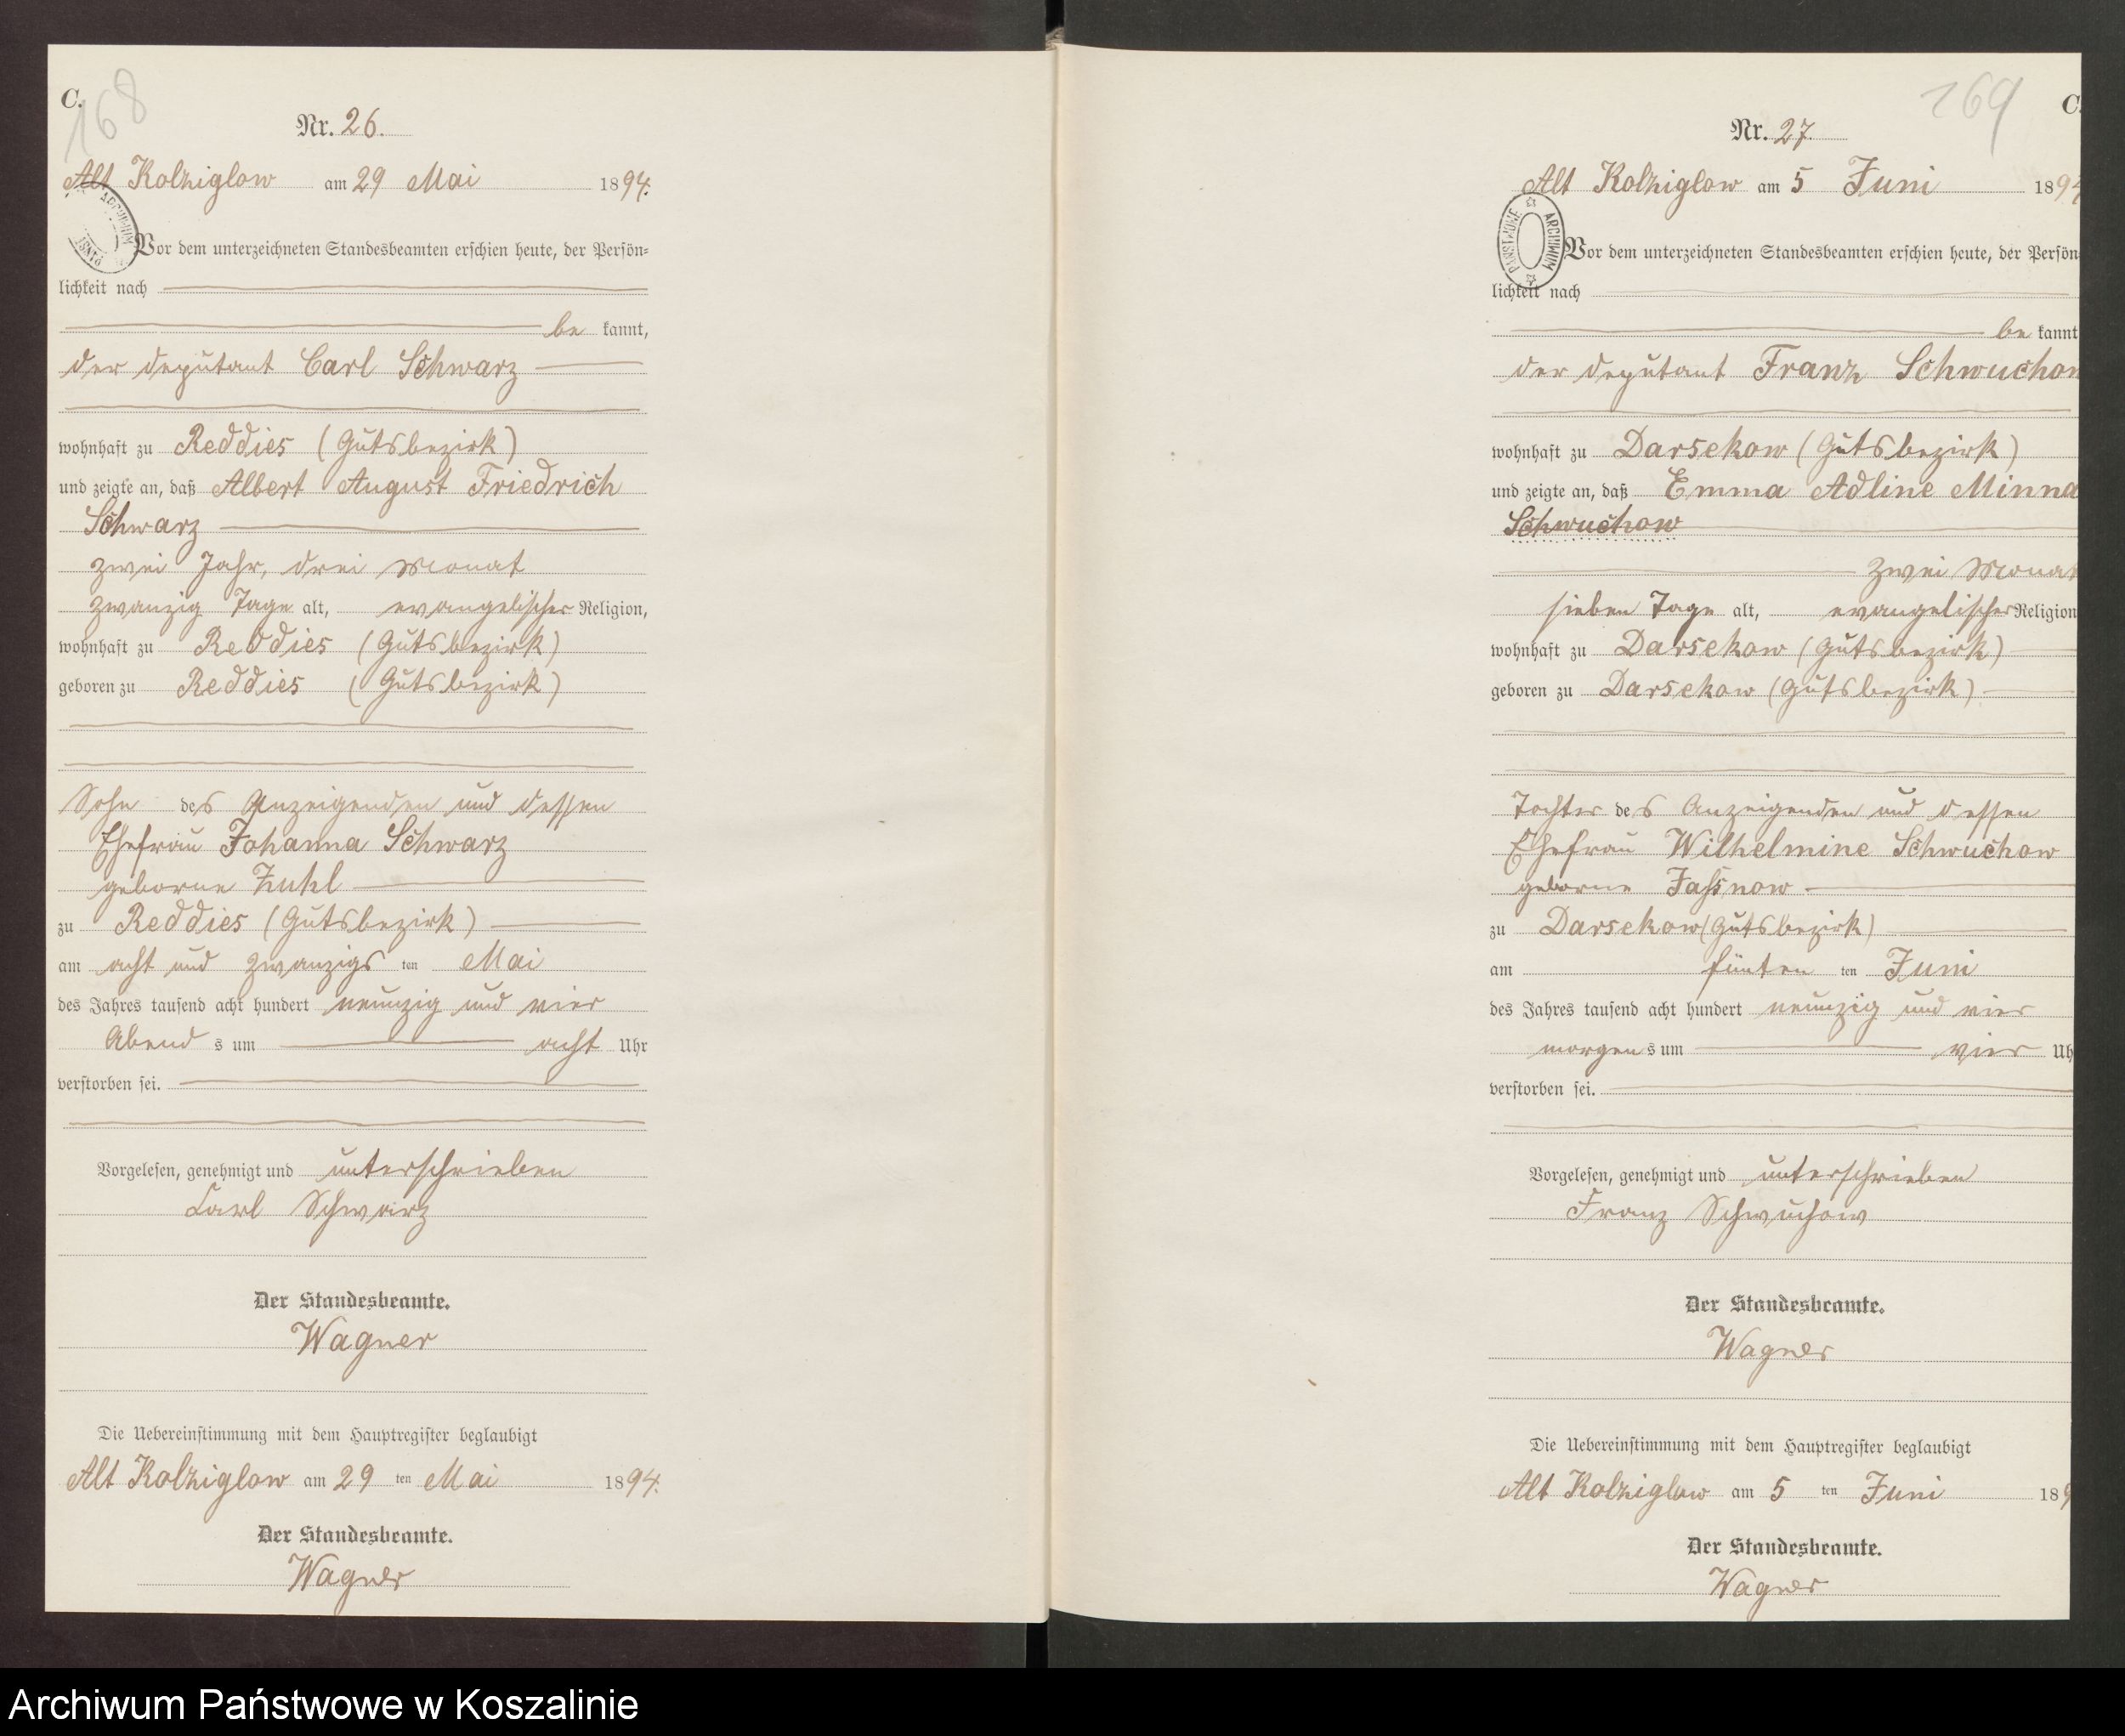 C.
168
Nr. 26.
Alt Kolziglow am 29 Mai 1894.
Vor dem unterzeichneten Standesbeamten erschien heute, der Persön-
lichkeit nach
be kannt,
der Deputant Carl Schwarz
wohnhaft zu Reddies (Gutsbezirk)
und zeigte an, daß Albert August Friedrich
Schwarz
zwei Jahr, drei Monat
zwanzig Tage alt, evangelischer Religion,
wohnhaft zu Reddies (Gutsbezirk)
geboren zu Reddies (Gutsbezirk)
Sohn des Anzeigenden und dessen
Ehefrau Johanna Schwarz
geborne Zuhl
zu Reddies (Gutsbezirk)
am acht und zwanzigs ten Mai
des Jahres tausend acht hundert neunzig und vier
Abend s um acht Uhr
verstorben sei.
Vorgelesen, genehmigt und unterschrieben
Carl Schwarz
Der Standesbeamte.
Wagner
Die Uebereinstimmung mit dem Hauptregister beglaubigt
Alt Kolziglow am 29 ten Mai 1894.
Der Standesbeamte.
Wagner
169
C.
Nr. 27.
Alt Kolziglow am 5 Juni 1894
ARCHIWUM PAŃSTWOWE
Vor dem unterzeichneten Standesbeamten erschien heute, der Persön-
lichkeit nach
be kannt
der Deputant Franz Schwuchow
wohnhaft zu Darsekow (Gutsbezirk)
und zeigte an, daß Emma Adline Minna
Schwuchow
zwei Monat
sieben Tage alt, evangelischer Religion
wohnhaft zu Darsekow (Gutsbezirk)
geboren zu Darsekow (Gutsbezirk)
Tochter des Anzeigenden und dessen
Ehefrau Wilhelmine Schwuchow
geborne Jassnow
zu Darsekow (Gutsbezirk)
am fünften ten Juni
des Jahres tausend acht hundert neunzig und vier
morgen s um vier Uh
verstorben sei.
Vorgelesen, genehmigt und unterschrieben
Franz Schwuchow
Der Standesbeamte.
Wagner
Die Uebereinstimmung mit dem Hauptregister beglaubigt
Alt Kolziglow am 5 ten Juni 189
Der Standesbeamte.
Wagner
Archiwum Państwowe w Koszalinie